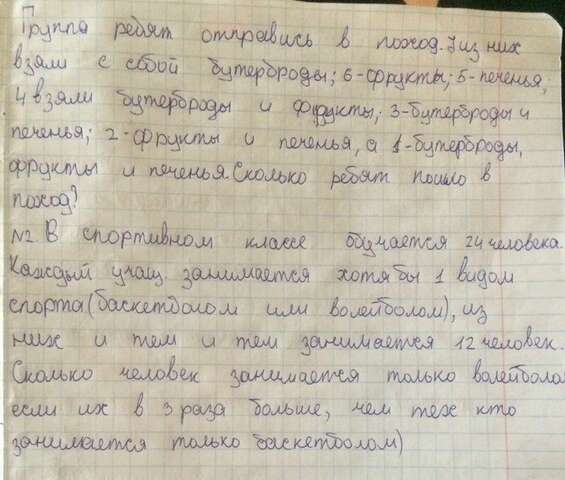 Группа ребят отправись в поход. 7 из них
взяли с собой бутерброды; 6-фрукты; 5-печенья;
4 взяли бутерброды и фрукты; 3-бутерброды и
печенья; 2-фрукты и печенья, а 1-бутерброды,
фрукты и печенья. Сколько ребят пошло в
поход?
N2. В спортивном классе обучается 24 человека.
Каждый учащ. занимается хотя бы 1 видом
спорта (баскетболом или волейболом), из
них и тем и тем занимается 12 человек.
Сколько человек занимается только волейболо
если их в 3 раза больше, чем тех кто
занимается только баскетболом)